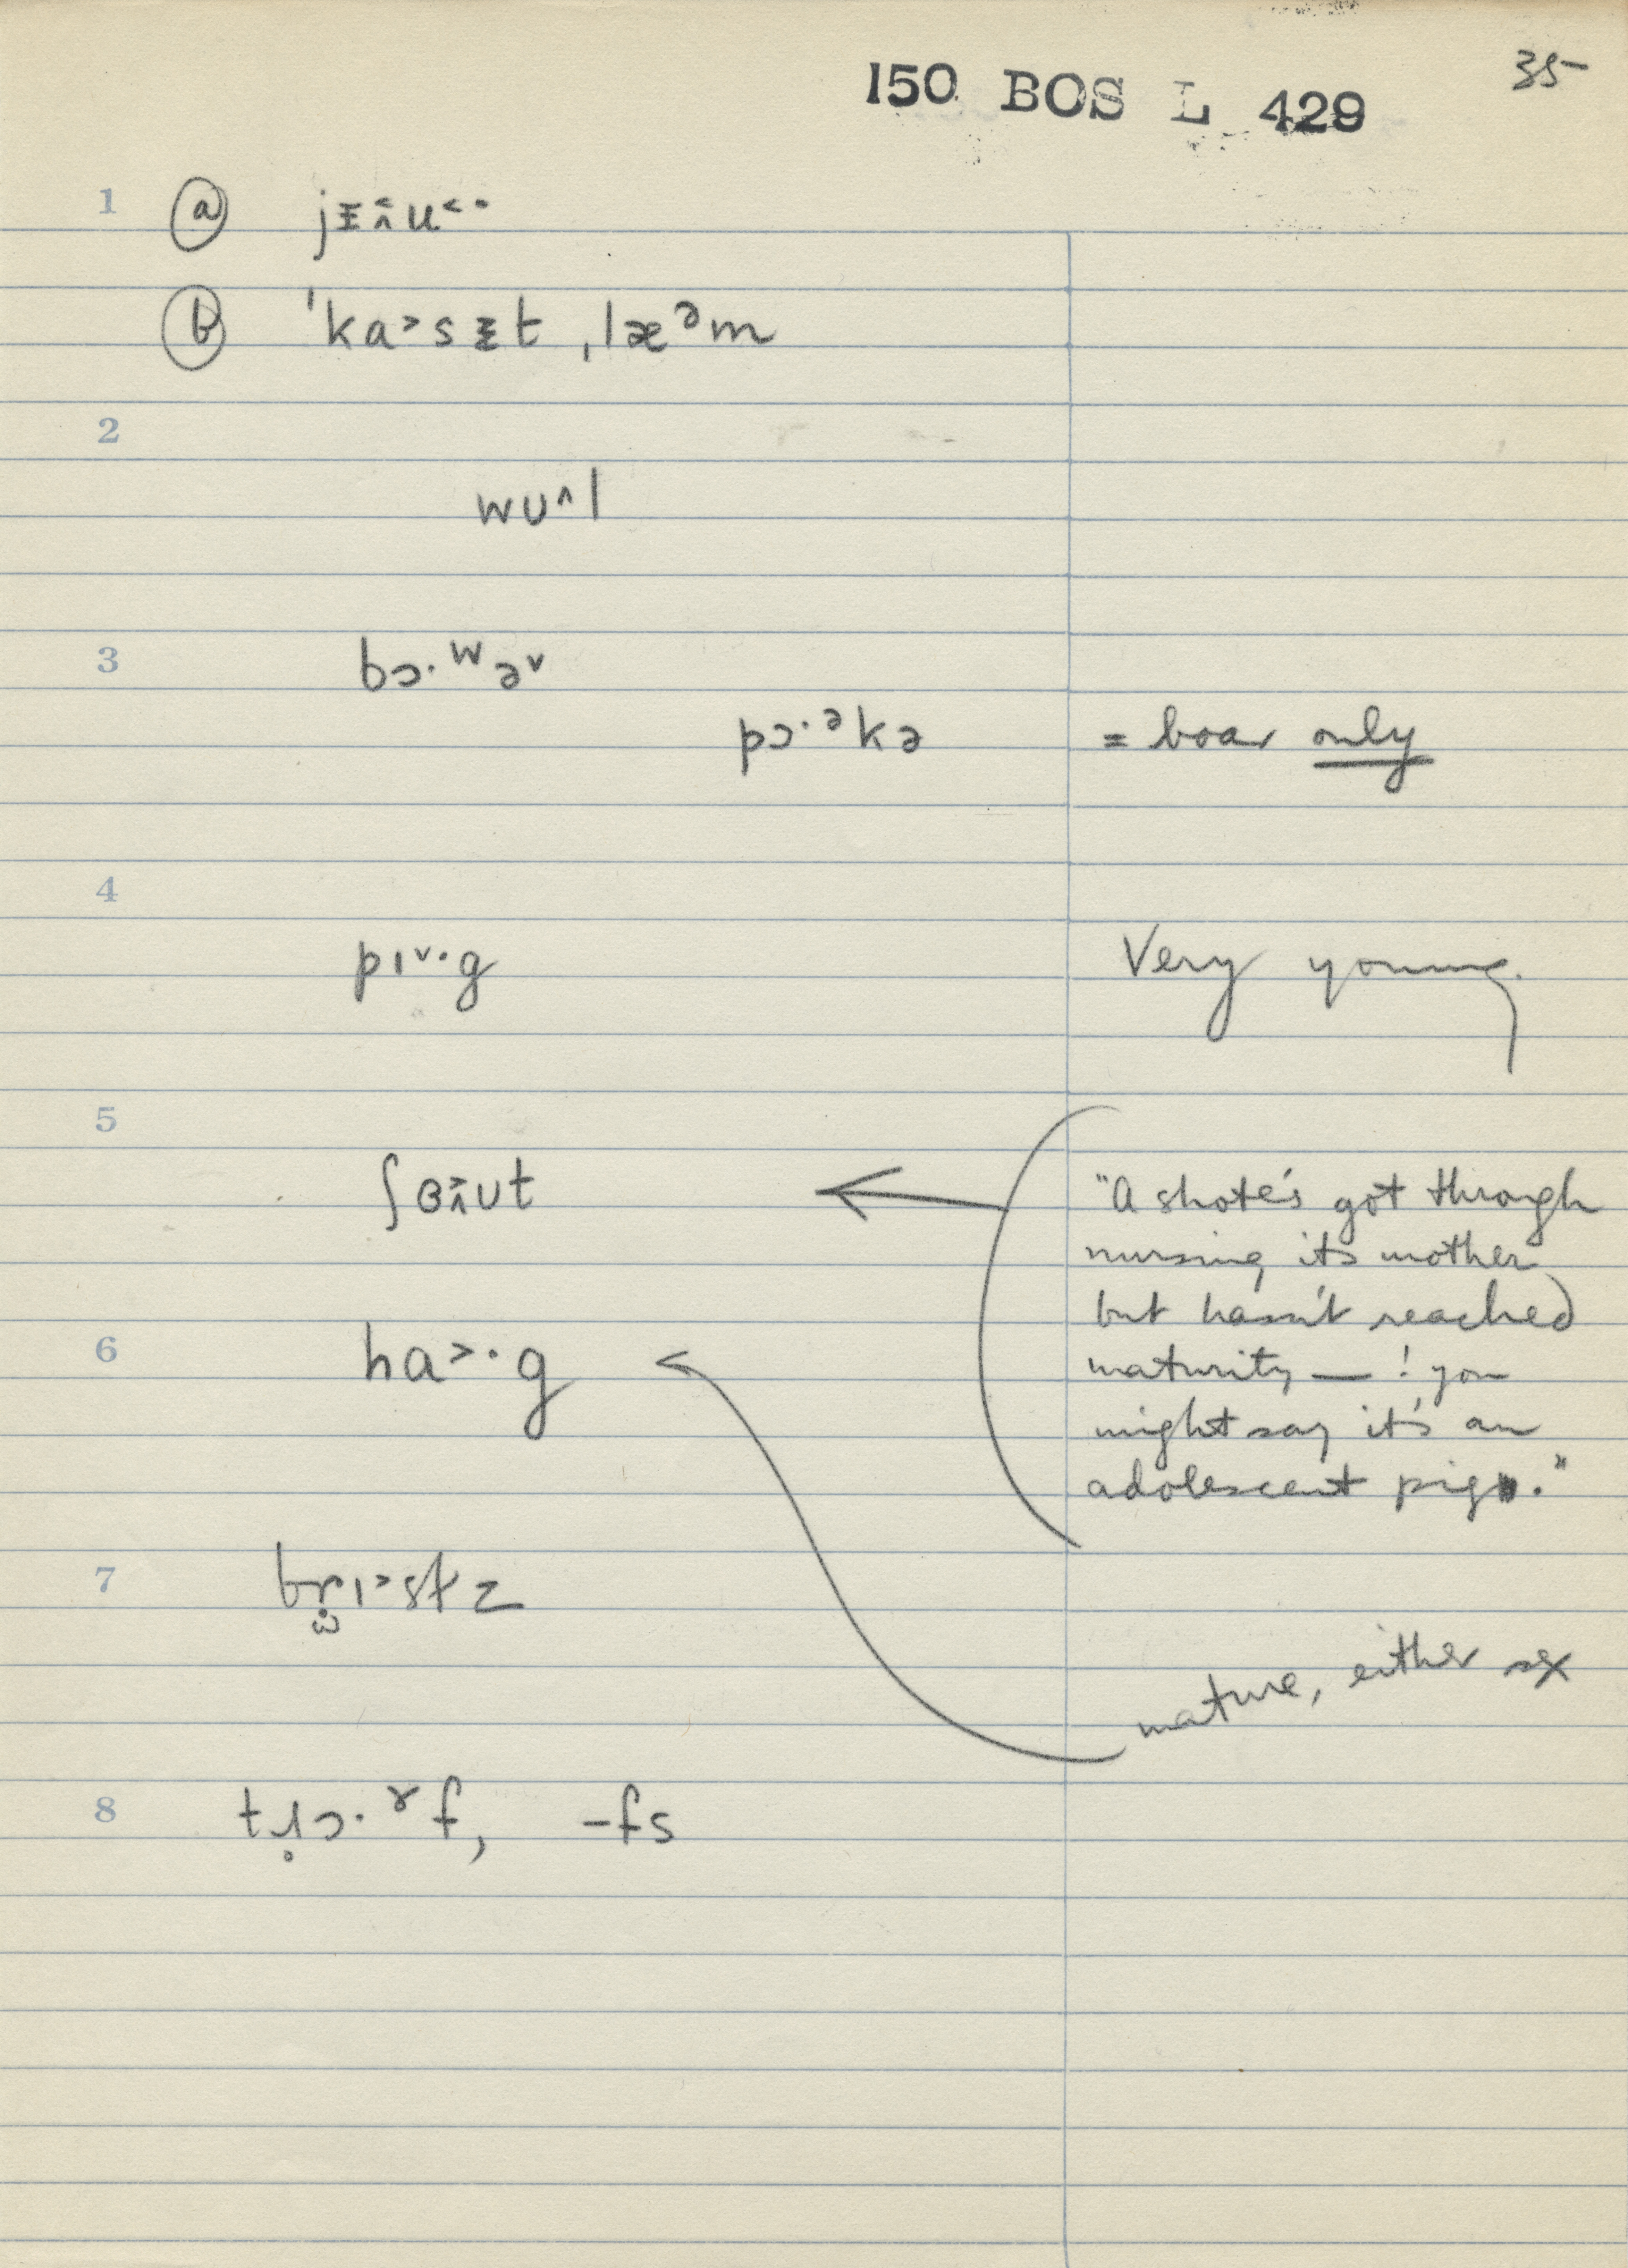 35
150 BOS L 429
1 ⓐ jɪ̵̂u˂·
ⓑ ˈka˃sɪ̵t ˌlæᵊm
2
wᴜ˄l
3 bɔ·ʷə˅
pɔ·ᵊkə = boar only
4
pɪ˅·g Very young.
5
ʃɵ̂ᴜt "A shote's got through
nursing its mother
but hasn't reached
6 ha˃·g maturity — ! you
might say it's an
adolescent pig."
7 brɪ˃stz
mature, either sex
8 trɔ·ɤf, -fs